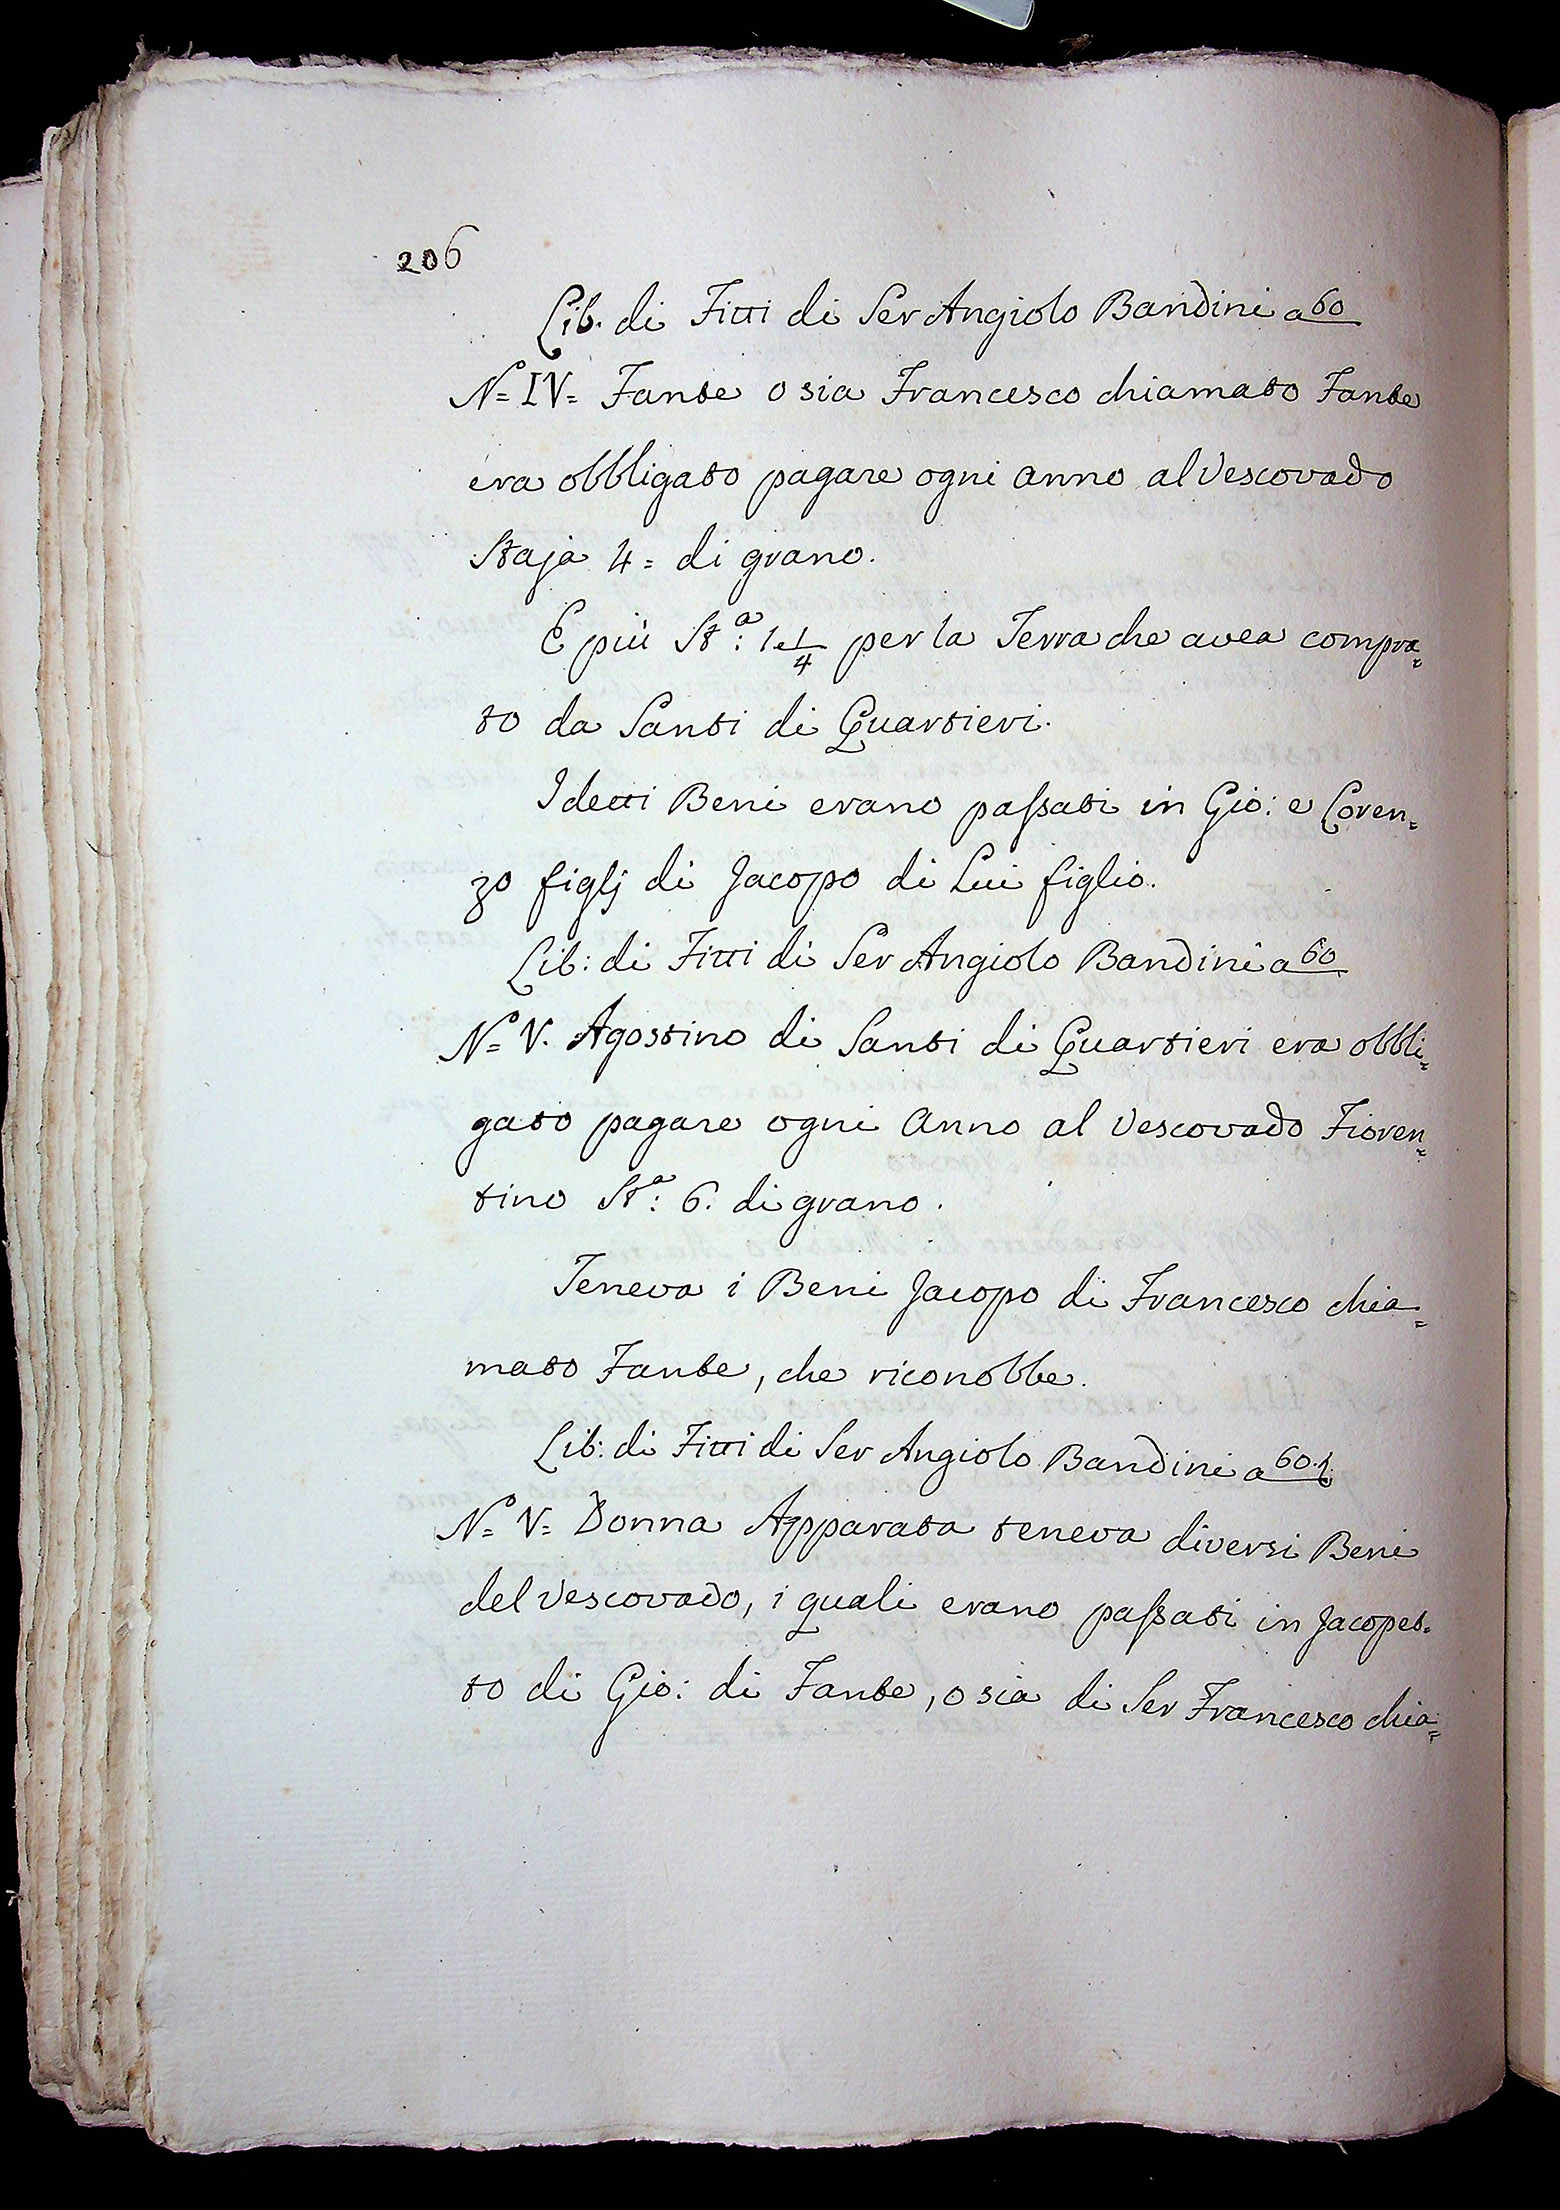 206
Lib. di Fitti di Ser Angiolo Bandini a 60
Nº= IV= Fante o sia Francesco chiamato Fante
era obbligato pagare ogni anno al Vescovado
Staja 4= di grano.
E più Stª: 1 e 1/4 per la Terra che avea compra=
to da Santi di Quartieri.
I detti Beni erano passati in Gio: e Loren=
zo figlj di Jacopo di Lui figlio.
Lib: di Fitti di Ser Angiolo Bandini a 60
Nº= V. Agostino di Santi di Quartieri era obbli=
gato pagare ogni Anno al Vescovado Fioren=
tino Stª: 6. di grano.
Teneva i Beni Jacopo di Francesco chia=
mato Fante, che riconobbe.
Lib: di Fitti di Ser Angiolo Bandini a 60.
Nº= V= Donna Apparata teneva diversi Beni
del Vescovado, i quali erano passati in Jacopet=
to di Gio: di Fante, o sia di Ser Francesco chia=